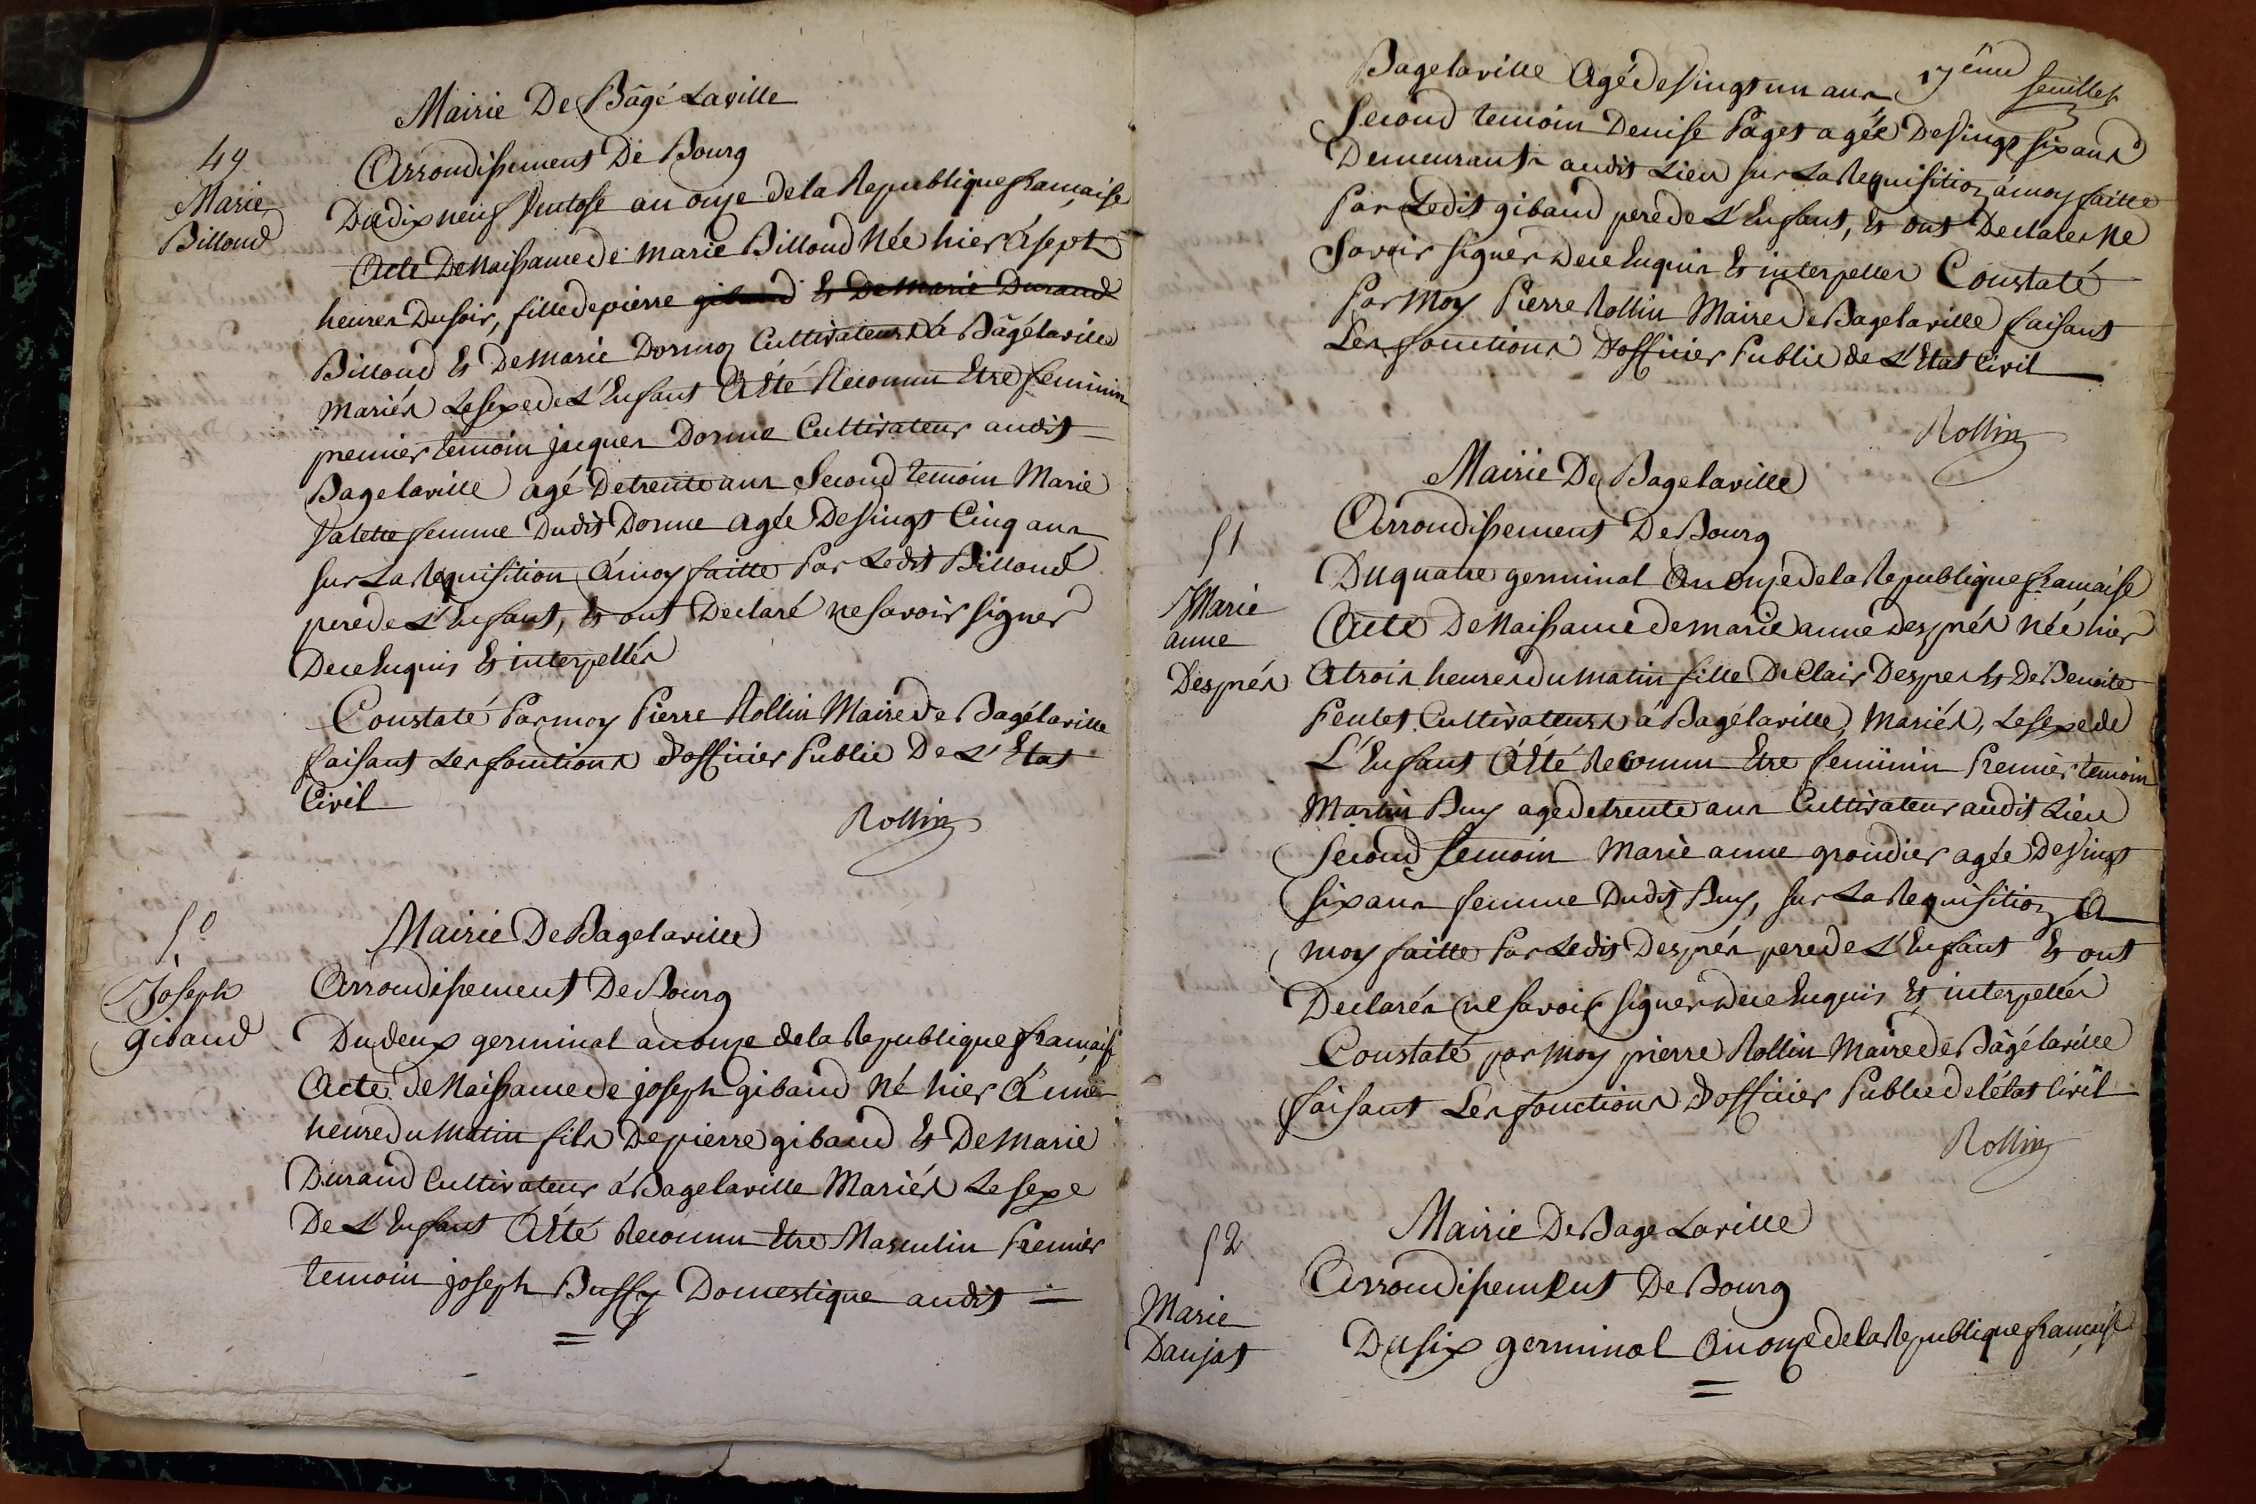 Mairie De Bâgé Laville
49
Marie
Billoud
Arrondissement De Bourg
Du dix neuf Ventose an onze de la Republique francaise
Acte De Naissance de marie Billoud Née hier à sept
heures Du soir, fille de pierre gibaud Et De Marie Durand
Billoud Et De Marie Dormoy Cultivateurs à Bâgélaville
Mariés Le sexe de L'Enfant A Eté Reconnu Etre feminin
premier temoin jacques Dorme Cultivateur audit
Bagelaville agé De trente ans Second temoin Marie
Valette femme Dudit Dorme agée De Vingt Cinq ans
sur La Requisition à moy faitte Par Ledit Billoud
pere de L'Enfant, Et ont Declaré ne savoir signer
De ce Enquis Et interpellés
Constaté Par moy Pierre Rollin Maire de Bagélaville
faisant Les fonctions D'officier Public De L'Etat
Civil
Rollin
50
Joseph
gibaud
Mairie De Bagelaville
Arrondissement De Bourg
Du deux germinal an onze de la Republique francaise
Acte de Naissance de joseph gibaud Né hier à une
heure du Matin fils De pierre gibaud Et De Marie
Durand Cultivateur à Bagelaville Mariés Le sexe
De L'Enfant A Eté Reconnu Etre Masculin Premier
temoin joseph Bussy Domestique audit =
=
17eme feuillet
Bagelaville Agé de Vingt un ans
Second temoin Denise Paget agée De Vingt six ans
Demeurants audit Lieu sur La Requisition à moy faitte
Par Ledit gibaud pere de L'Enfant, Et ont Declarer Ne
Savoir signer de ce Enquis Et interpeller Constaté
Par Moy Pierre Rollin Maire de Bagelaville faisant
Les fonctions D'officier Public de L'Etat Civil
Rollin
Mairie De Bagelaville
51
Marie
anne
Després
Arrondissement De Bourg
Du quatre germinal An onze de la Republique francaise
Acte De Naissance de marie anne després Née hier
A trois heures du matin fille De Clair Despres Et De Benoite
Feulet Cultivateurs à Bagélaville, Mariés, Le sexe de
L'Enfant A Eté Reconnu Etre feminin Premier temoin
Martin Buy age de trente ans Cultivateur audit Lieu
Second temoin Marie anne grondier agée De Vingt
six ans femme Dudit Buy, sur La Requisition A
moy faitte Par Ledit Després pere de L'Enfant Et ont
Declarés ne savoir signer de ce Enquis Et interpellés
Constaté par moy pierre Rollin Maire de Bâgélaville
faisant Les fonctions D'officier Public de l'état Civil
Rollin
52
Marie
Daujat
Mairie De Bage Laville
Arrondissement De Bourg
Du six germinal An onze de la Republique francaise
=